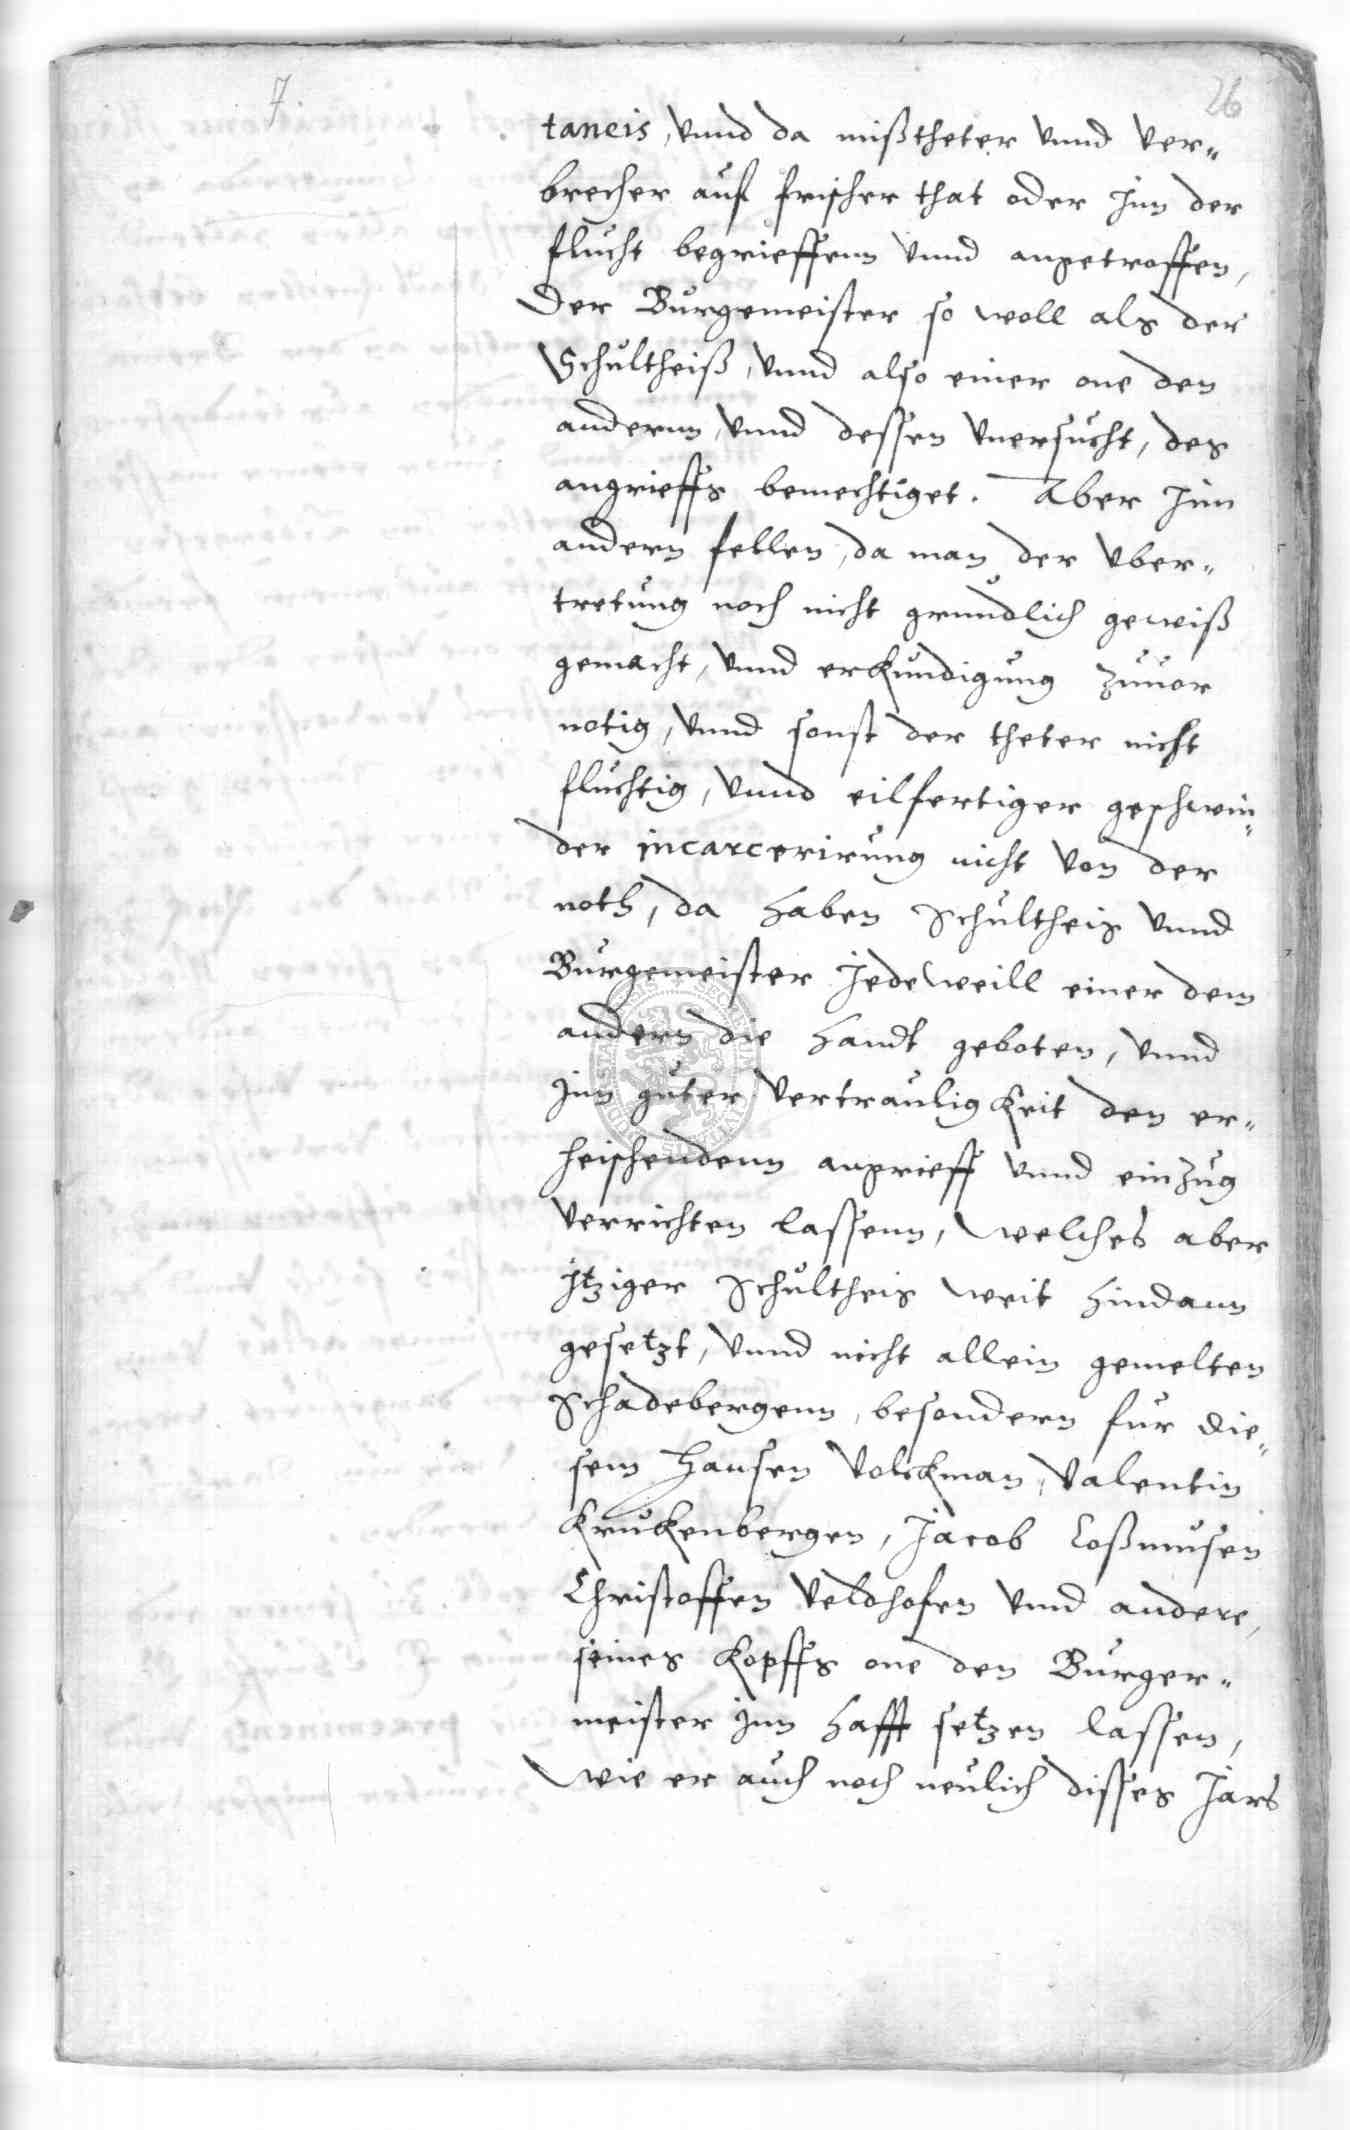 7.
26
taneis, vnnd da mißtheter vnnd ver-
brecher auf frischer that oder jnn der
flucht begrieffenn vnnd angetroffen,
Der Burgemeister so woll als der
Schultheiß, vnnd also einer one den
andernn, vnnd dessen vnersucht, des
angrieffs bemechtiget. Aber jnn
andern fellen, da man der vber-
tretung noch nicht grundlich gewiß
gemacht, vnnd erkundigung zuuor
notig, vnnd sonst der theter nicht
fluchtig, vnnd eilfertiger geschwin-
der incarcerirung nicht von der
noth, da haben Schultheis vnnd
Burgemeister jedeweill einer dem
andern die handt geboten, vnnd
jnn guter vertrauligkeit den er-
heischendenn angrieff vnnd einzug
verrichten lassenn, welches aber
jtziger Schultheis weit hindann
gesetzt, vnnd nicht allein gemelten
Schadebergenn, besondern fur die-
sem Hansen Volckman, Valentin
Krukenbergen, Jacob Coßmusen
Christoffen Veldhofen vnnd andere,
seines kopffs one den Burger-
meister jnn hafft setzen lassen,
wie er auch noch neulich disses Jars